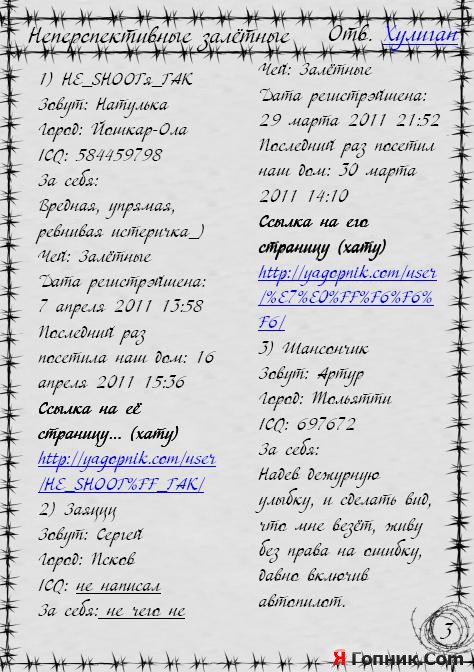 Неперспективные залётные Отв. Хулиган
1) НЕ_SHOOTя_ТАК
Зовут: Натулька
Город: Йошкар-Ола
ICQ: 584459798
За себя:
Вредная, упрямая,
ревнивая истеричка_)
Чей: Залётные
Дата регистрэйшена:
7 апреля 2011 13:58
Последний раз
посетила наш дом: 16
апреля 2011 15:36
Ссылка на её
страницу... (хату)
http://yagopnik.com/user
/НЕ_SHOOT%FF_ТАК/
2) Заяццц
Зовут: Сергей
Город: Псков
ICQ: не написал
За себя: не чего не
Чей: Залётные
Дата регистрэйшена:
29 марта 2011 21:52
Последний раз посетил
наш дом: 30 марта
2011 14:10
Ссылка на его
страницу (хату)
http://yagopnik.com/user
/%E7%E0%FF%F6%F6%
F6/
3) Шансончик
Зовут: Артур
Город: Тольятти
ICQ: 697672
За себя:
Надев дежурную
улыбку, и сделать вид,
что мне везёт, живу
без права на ошибку,
давно включив
автопилот.
3
Я Гопник.Com